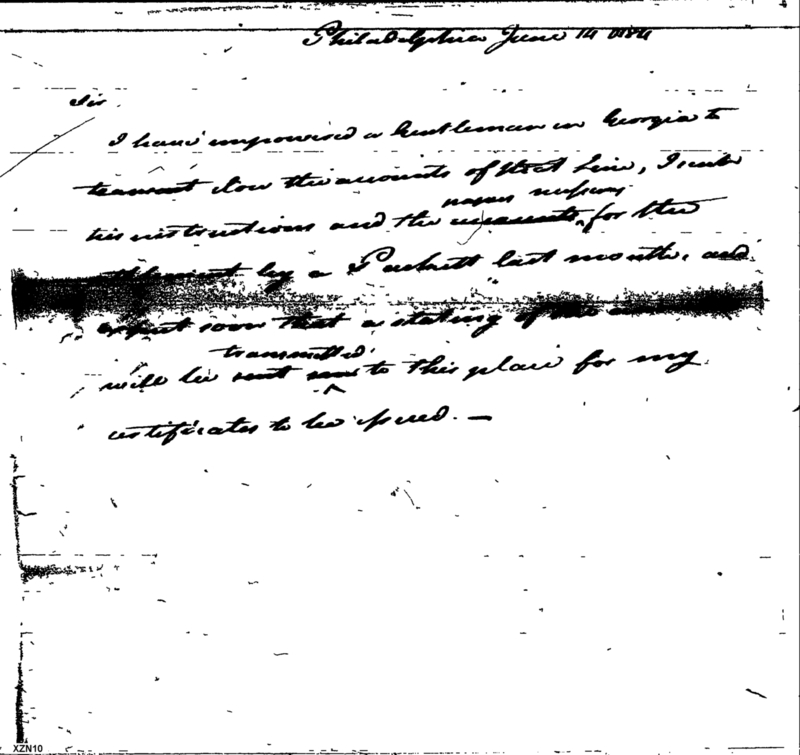 Philadelphia June 14 1784
Sir
I have impowired a Gentleman in Georgia to
transact the accounts of that Line, I sent
papers nessesary
his instructions and the for the
settlement by a Packett last month, and
expect soon that a stating of the
transmitted
will be sent to this place for my
certificates to be issued. —
XZN10